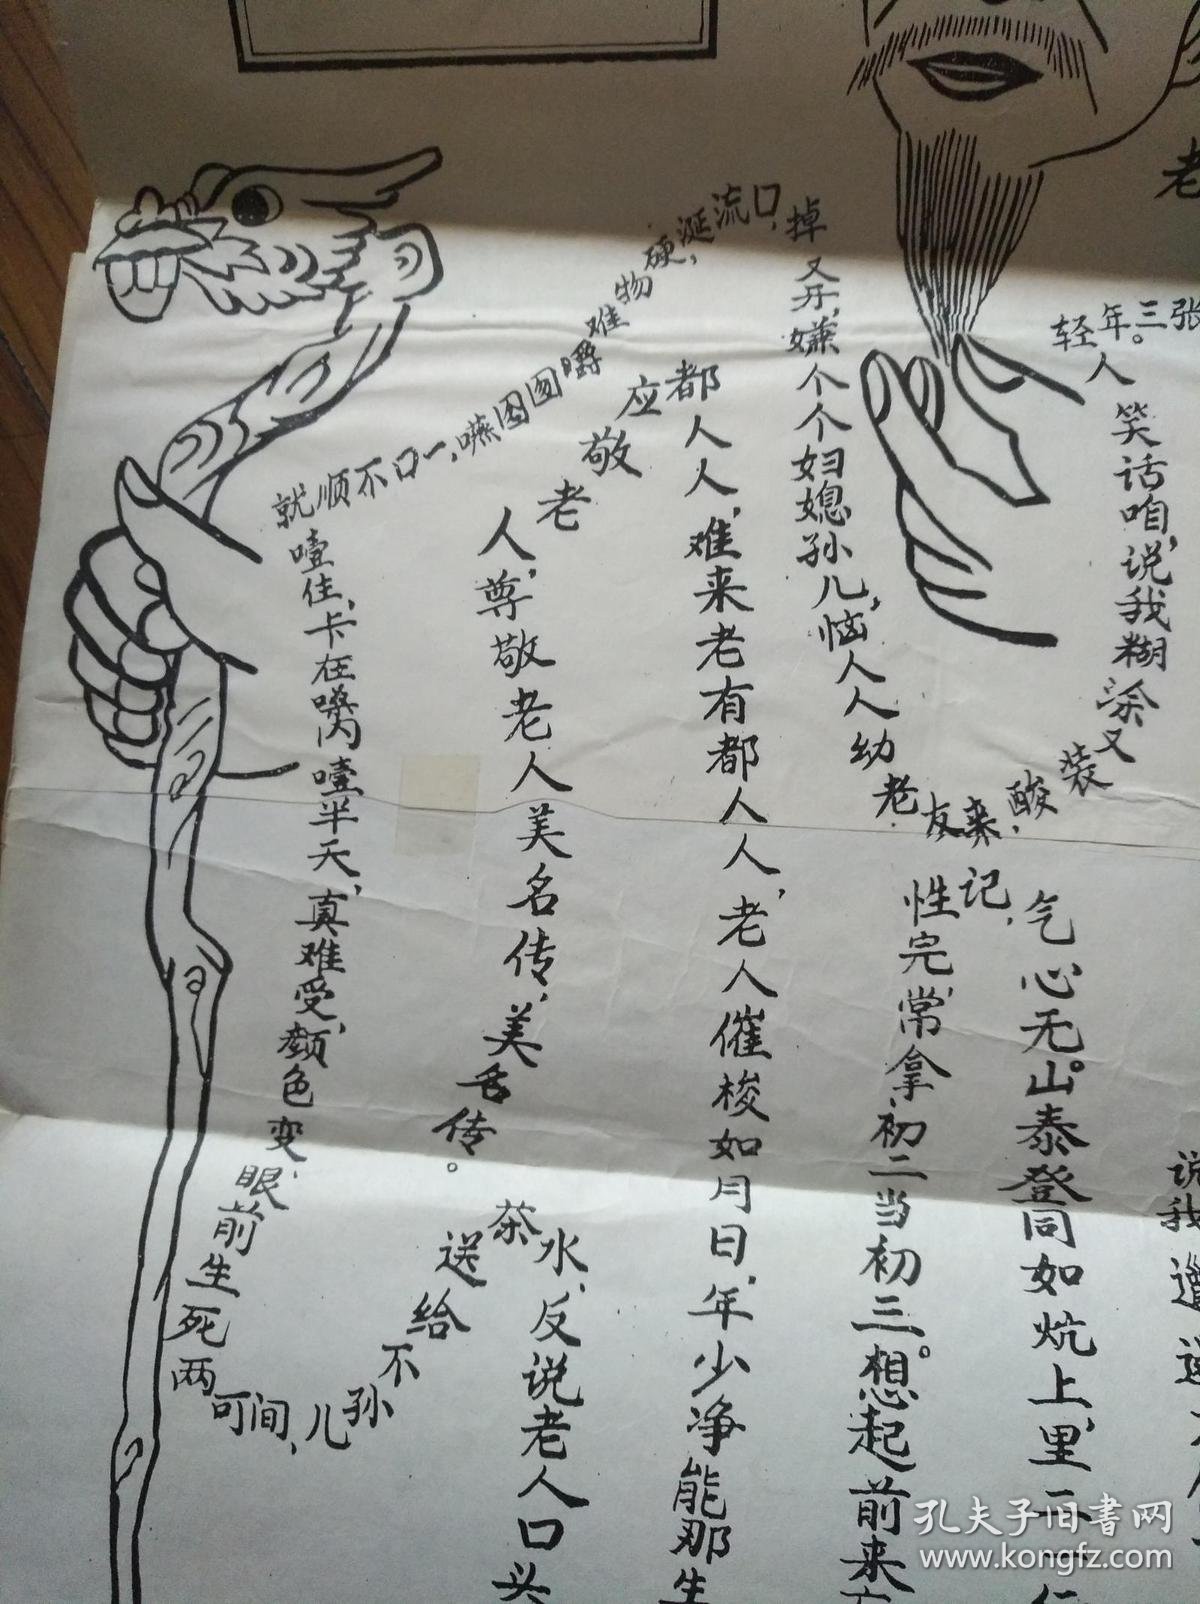 老
张三。年轻人笑话咱,说我糊涂又装酸,
气心无。山泰登同如炕上,里二一
说我
来友老幼人人恼,儿孙媳妇个个嫌,牙又掉,口流涎,硬物难嚼囫囵嚥,一口不顺就噎住,卡在嗓内噎半天,真难受,颜色变,眼前生死两可间,儿孙不给送茶水,反说老人口头
记性完,常拿初二当初三。想起前来
都人人,难来老有都人人,老人催梭如月日,年少净能那生
应敬老人,尊敬老人美名传,美名传。
孔夫子旧书网
www.kongfz.com